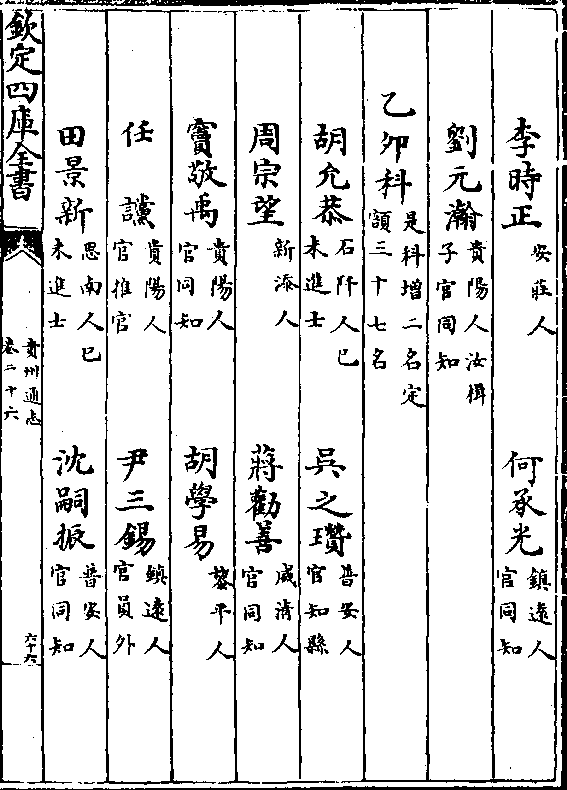 李時正安莊人　何承光鎮遠人官同知
劉元瀚貴陽人汝楫子官同知
乙卯科是科增二名定額三十七名
胡允恭石阡人己未進士　吳之瓚普安人官知縣
周宗望新添人　蔣勸善威清人官同知
竇敬禹貴陽人官同知　胡學易黎平人
任讜貴陽人官推官　尹三錫鎮遠人官員外
田景新思南人己未進士　沈嗣振普安人官同知
欽定四庫全書　貴州通志卷二十六　六十六